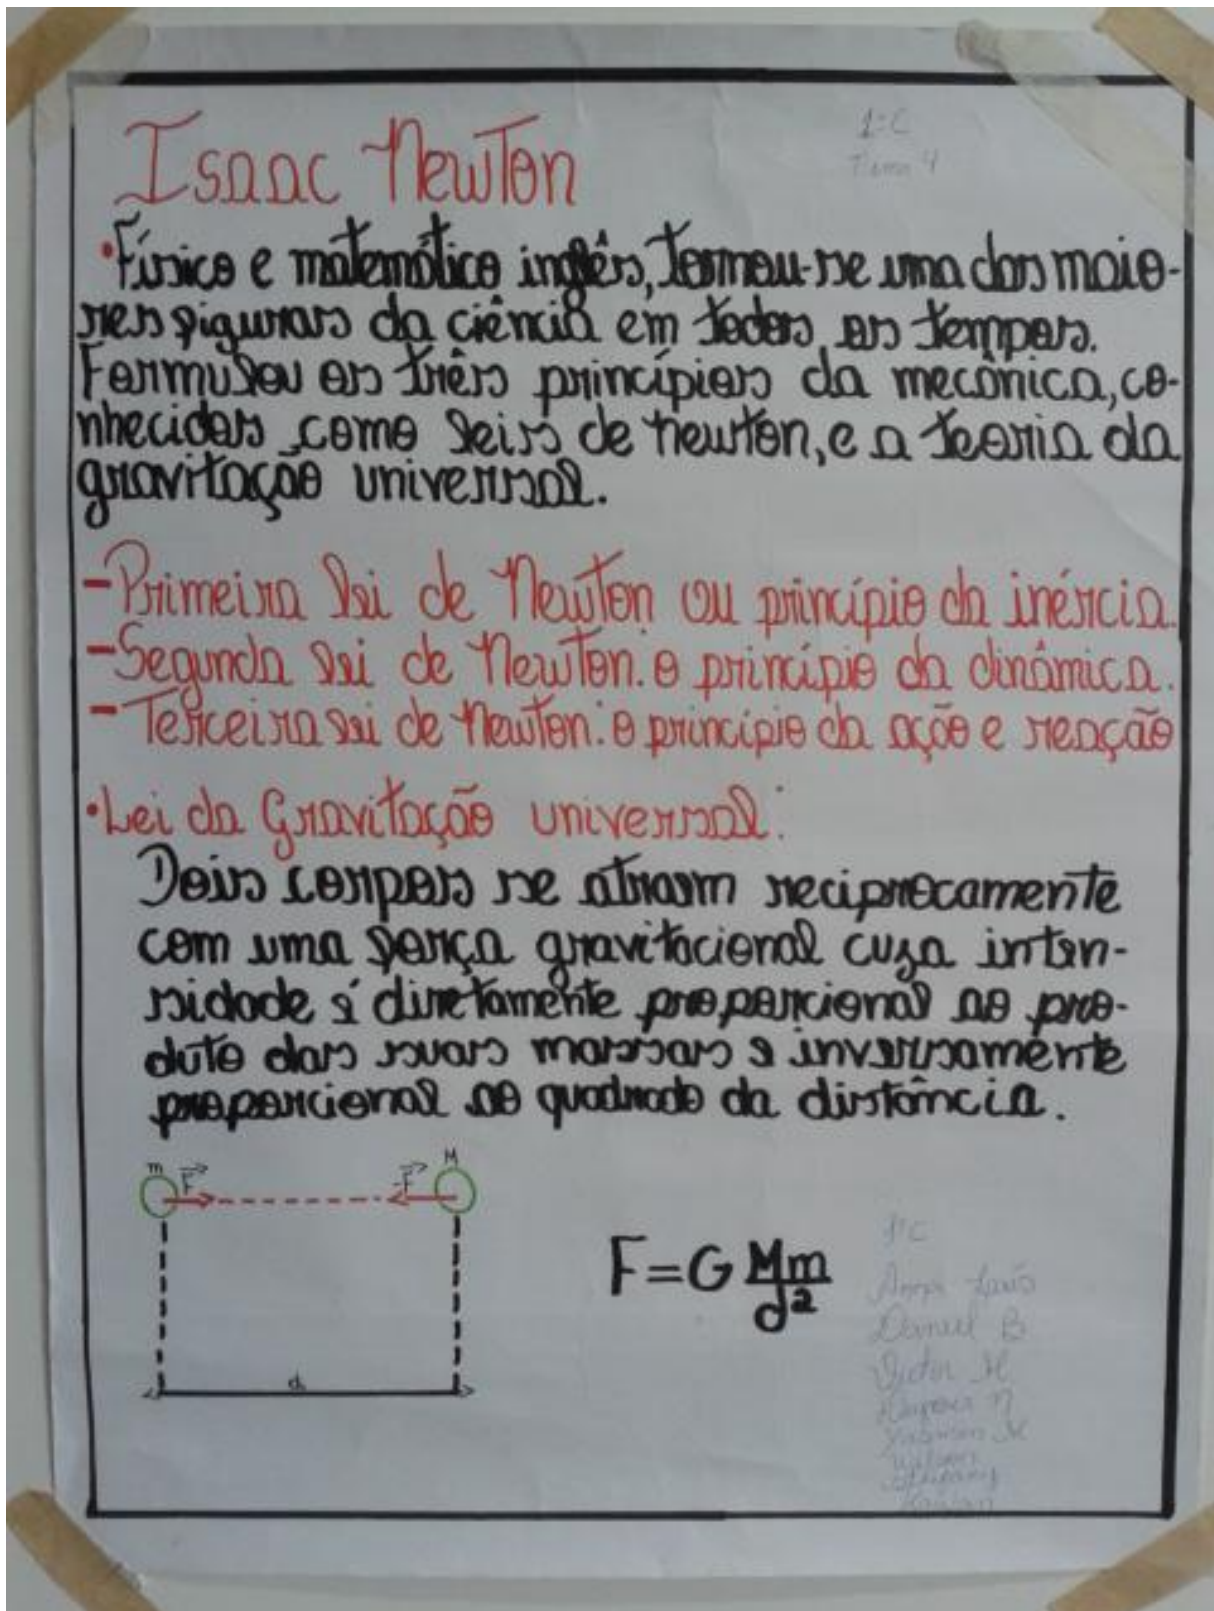 Isaac Newton
1ºC
Tema 4
•Físico e matemático inglês, tornou-se uma das maio-
res figuras da ciência em todos os tempos.
Formulou os três princípios da mecânica, co-
nhecidos como leis de newton, e a teoria da
gravitação universal.
-Primeira lei de Newton ou princípio da inércia.
-Segunda lei de Newton: o princípio da dinâmica.
-Terceira lei de Newton: o princípio da ação e reação
•Lei da Gravitação universal:
Dois corpos se atraem reciprocamente
com uma força gravitacional cuja inten-
sidade é diretamente proporcional ao pro-
duto das suas massas e inversamente
proporcional ao quadrado da distância.
m F -F M
d
F=G Mm
d²
1ºC
Daniel B
Victor H
Wilson